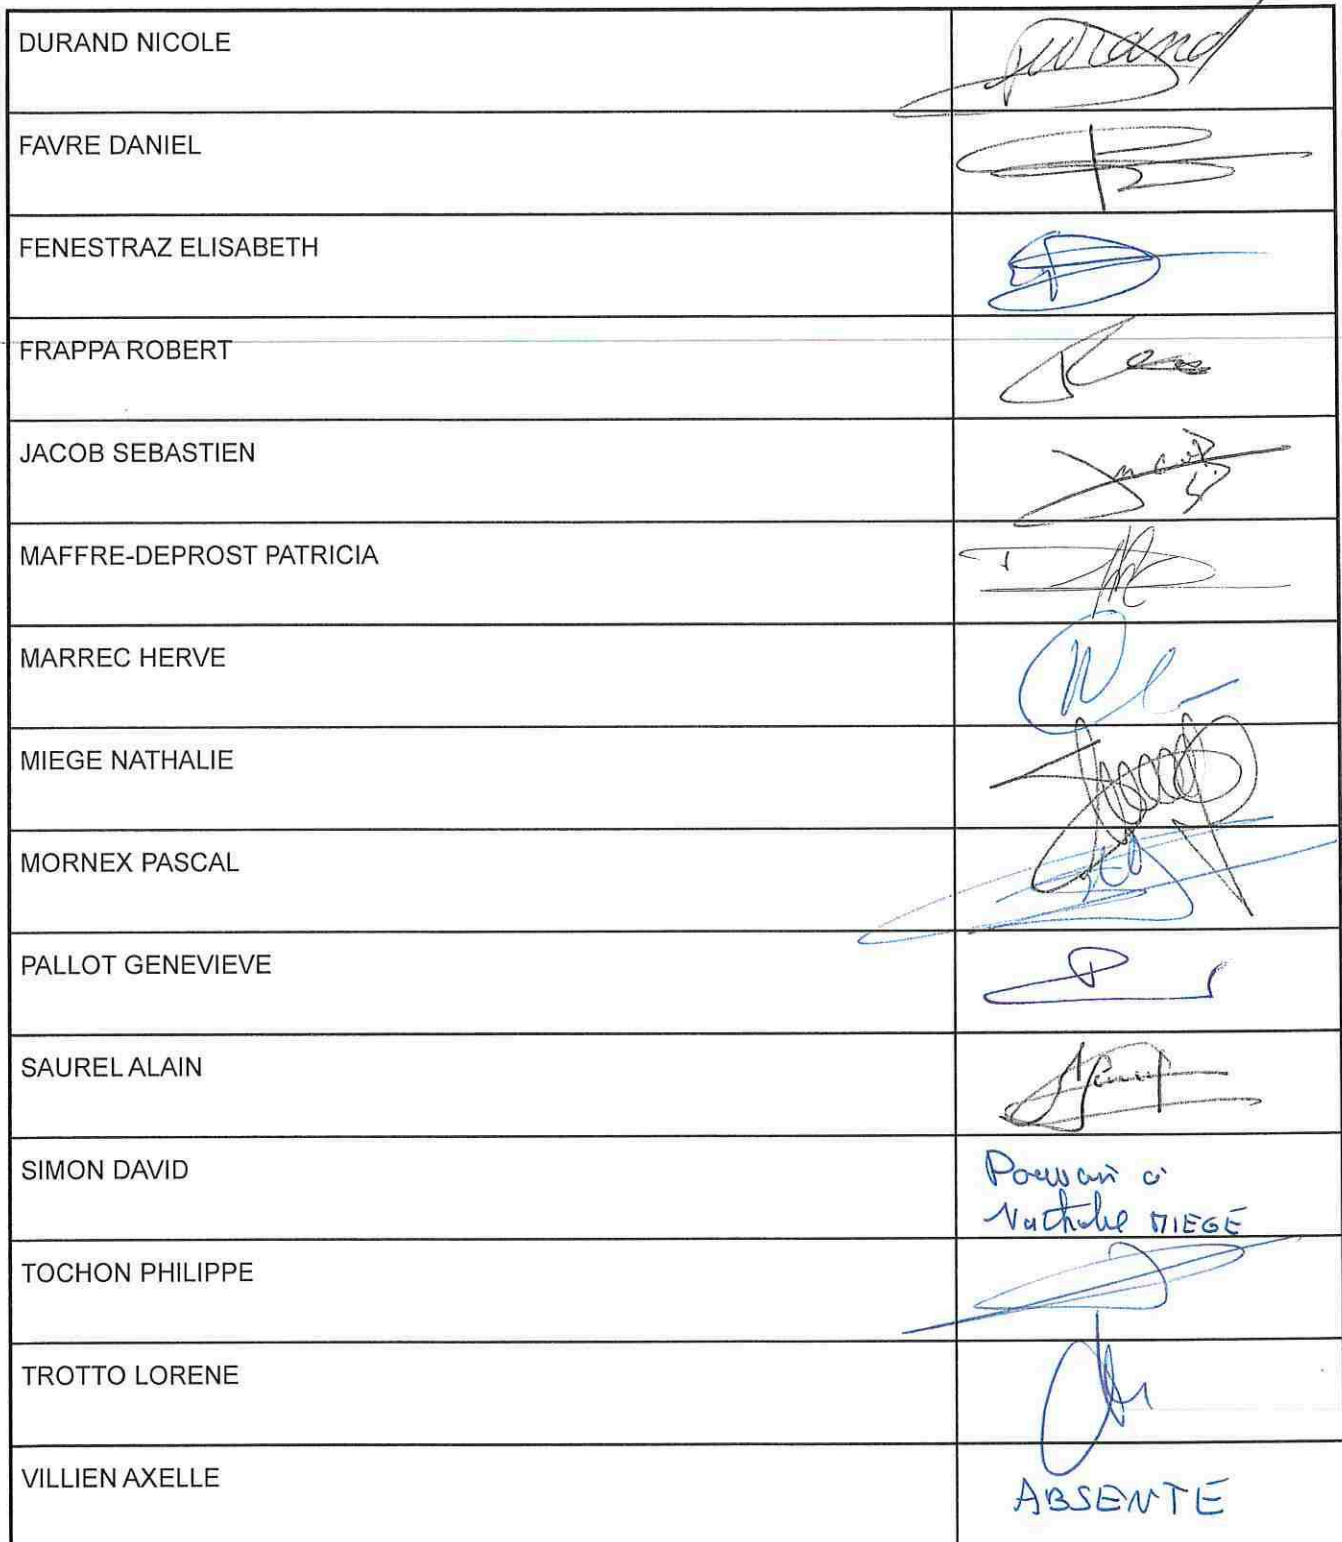 DURAND NICOLE
Durand
FAVRE DANIEL
FENESTRAZ ELISABETH
FRAPPA ROBERT
JACOB SEBASTIEN
Jacob
MAFFRE-DEPROST PATRICIA
MARREC HERVE
MIEGE NATHALIE
MORNEX PASCAL
PALLOT GENEVIEVE
SAUREL ALAIN
SIMON DAVID
Pouvoir à
Nathalie MIEGE
TOCHON PHILIPPE
TROTTO LORENE
VILLIEN AXELLE
ABSENTE